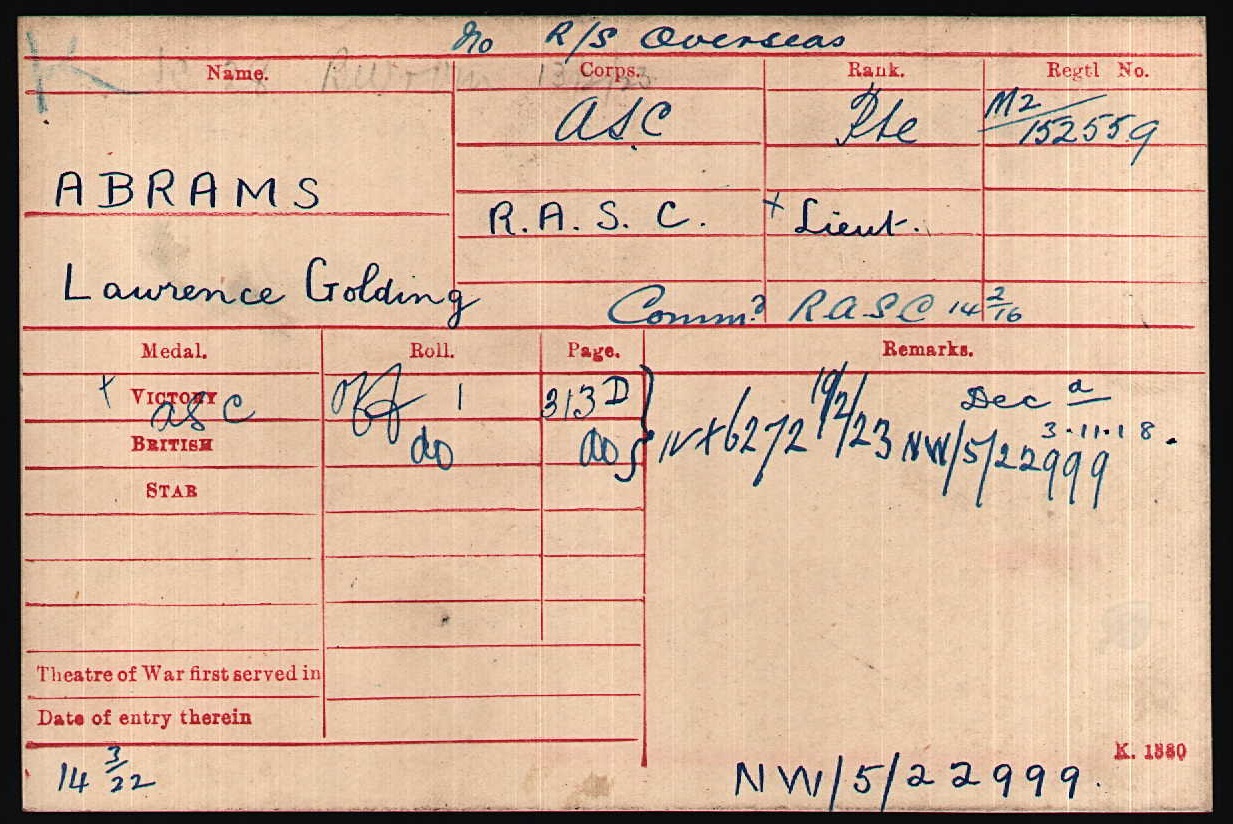 No R/S Overseas
Name. Corps. Rank. Regtl No.
ASC Pte M2/152559
ABRAMS
R.A.S.C. + Lieut.
Lawrence Golding
Commd RASC 14 2/16
Medal. Roll. Page. Remarks.
+ VICTORY Off 1 313 D Dec a
ASC 19/2/23 3.11.18.
BRITISH do do IV+6272 NW/5/22999
STAR
Theatre of War first served in
Date of entry therein
14 3/22 K. 1380
NW/5/22999.